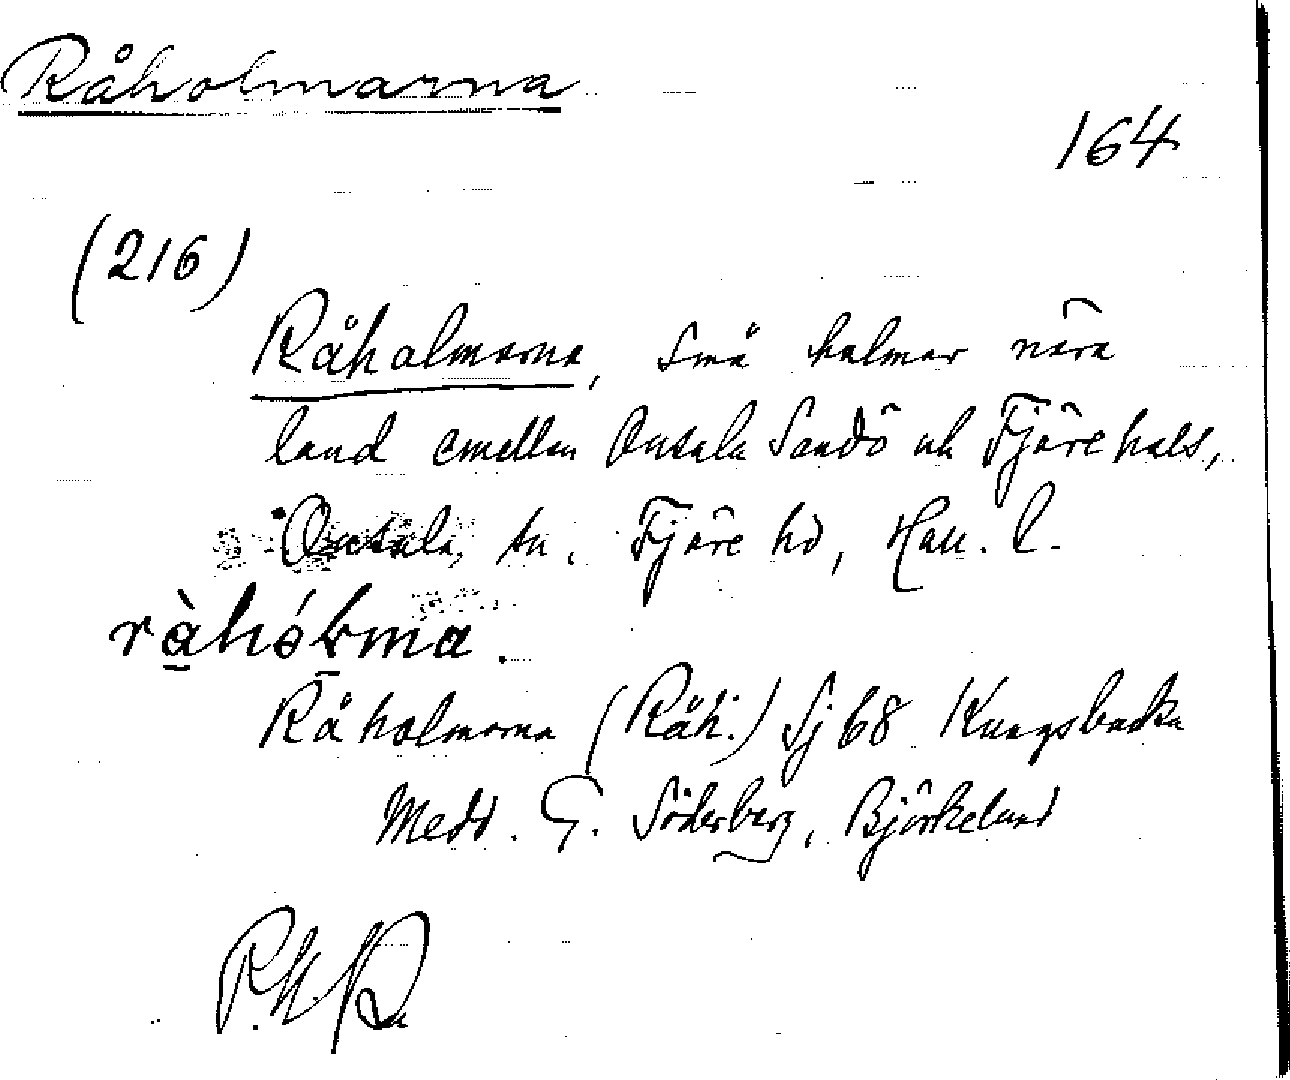 Råholmarna
164
(216)
Råholmarna, små holmar nära
land emellan Onsala Sandö och Fjärehals,
Onsala, sn. Fjäre hd, Hall. l.
Råholmarna (Råh.) Sj 68 Kungsbacka
Medd. G. Söderberg, Björkelund